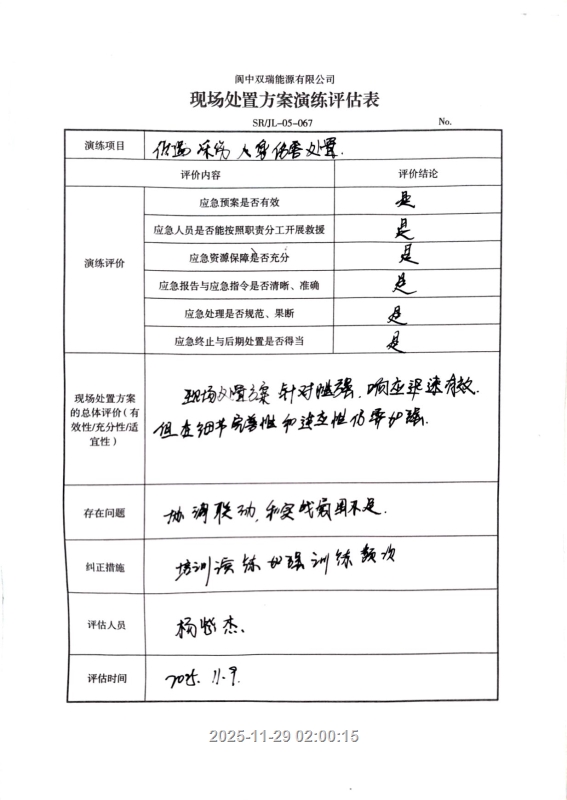 阆中双瑞能源有限公司
现场处置方案演练评估表
SR/JL-05-067 No.
演练项目 人身伤害处置.
评价内容 评价结论
演练评价
应急预案是否有效 是
应急人员是否能按照职责分工开展救援 是
应急资源保障是否充分 是
应急报告与应急指令是否清晰、准确 是
应急处理是否规范、果断 是
应急终止与后期处置是否得当 是
现场处置方案
的总体评价（有
效性/充分性/适
宜性）
现场处置方案 针对性强, 响应迅速有效.
但在细节完善性和适应性仍需加强.
存在问题 协调联动, 和实战 不足.
纠正措施 培训演练 加强训练频次
评估人员 杨 杰.
评估时间 2025. 11. 9.
2025-11-29 02:00:15